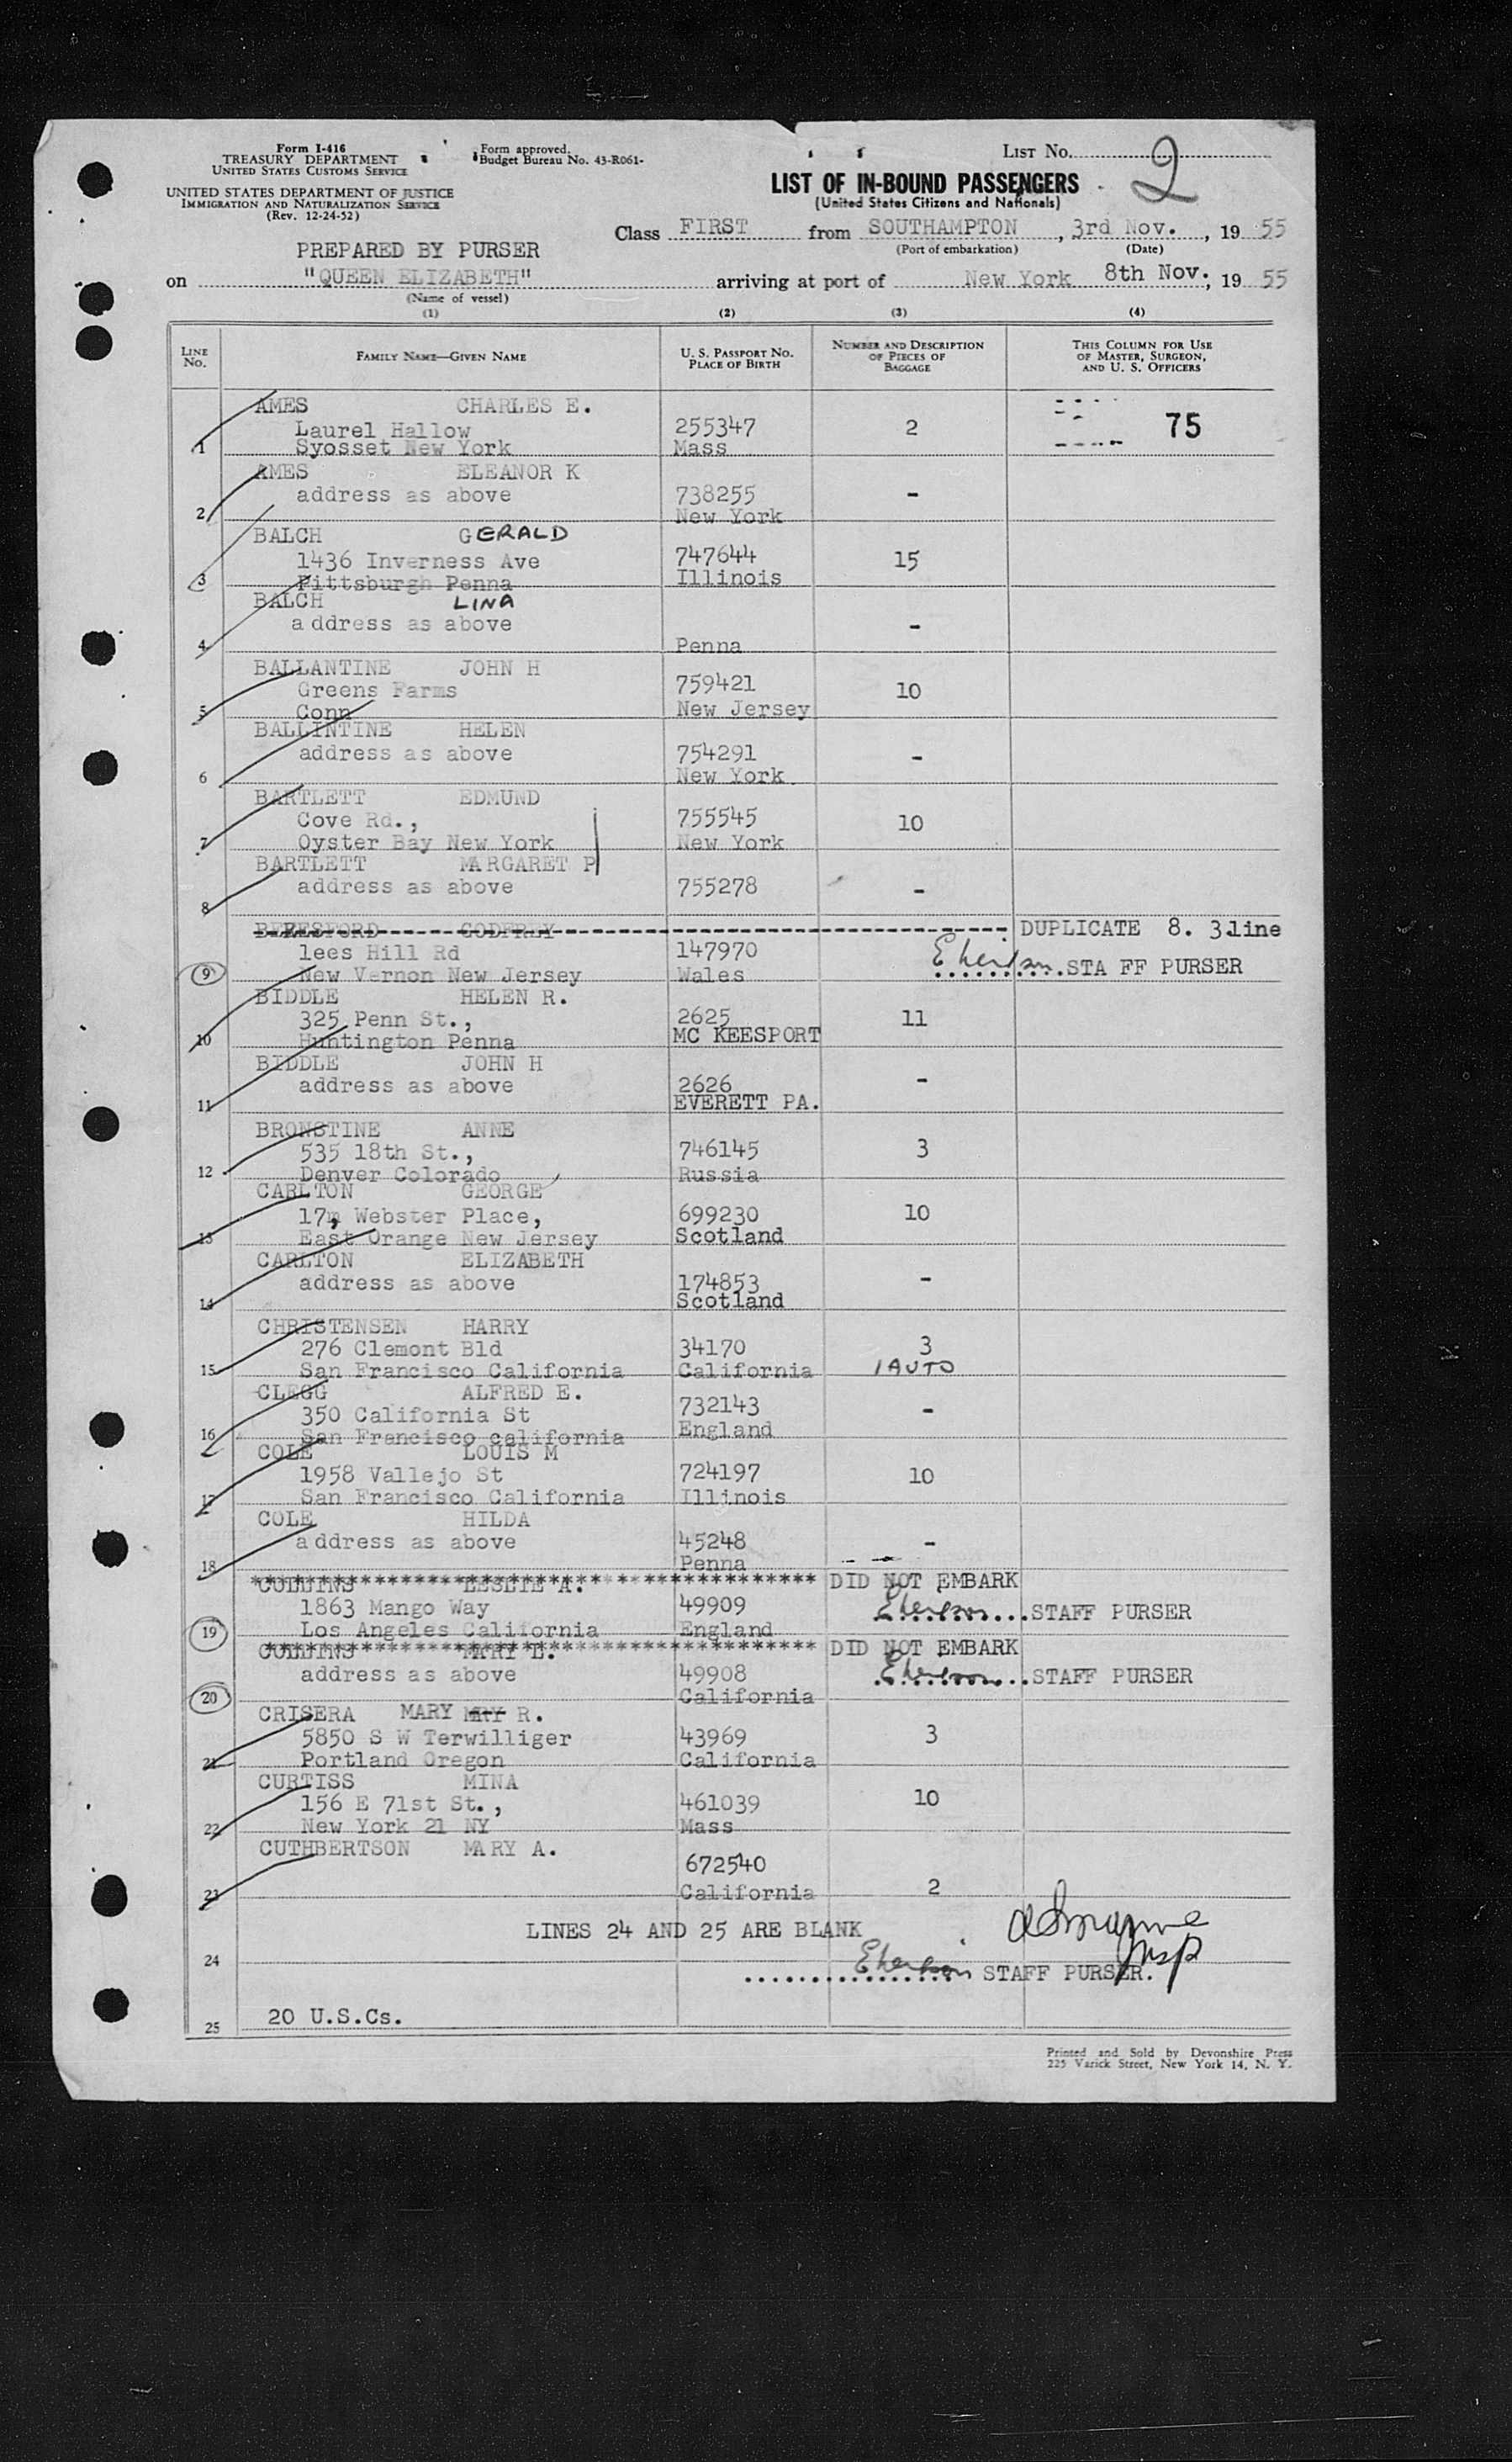 Form I-416
TREASURY DEPARTMENT
UNITED STATES CUSTOMS SERVICE
UNITED STATES DEPARTMENT OF JUSTICE
IMMIGRATION AND NATURALIZATION SERVICE
(Rev. 12-24-52)
Form approved.
Budget Bureau No. 43-R061-
LIST NO. 2
LIST OF IN-BOUND PASSENGERS
(United States Citizens and Nationals)
Class FIRST from SOUTHAMPTON, 3rd Nov., 19 55
(Port of embarkation) (Date)
PREPARED BY PURSER
on "QUEEN ELIZABETH" arriving at port of New York 8th Nov., 19 55
(Name of vessel)
(1) (2) (3) (4)
LINE NO. FAMILY NAME—GIVEN NAME U. S. PASSPORT NO. PLACE OF BIRTH NUMBER AND DESCRIPTION OF PIECES OF BAGGAGE THIS COLUMN FOR USE OF MASTER, SURGEON, AND U. S. OFFICERS
AMES CHARLES E.
Laurel Hallow 255347 2 75
1 Syosset New York Mass
AMES ELEANOR K
address as above 738255 -
2 New York
BALCH GERALD
1436 Inverness Ave 747644 15
3 Pittsburgh Penna Illinois
BALCH LINA
address as above -
4 Penna
BALLANTINE JOHN H
Greens Farms 759421 10
5 Conn New Jersey
BALLINTINE HELEN
address as above 754291 -
6 New York
BARTLETT EDMUND
Cove Rd., 755545 10
7 Oyster Bay New York New York
BARTLETT MARGARET P
address as above 755278 -
8
BERESFORD GODFREY DUPLICATE 8. 3.line
lees Hill Rd 147970
9 New Vernon New Jersey Wales STA FF PURSER
BIDDLE HELEN R.
325 Penn St., 2625 11
10 Huntington Penna MC KEESPORT
BIDDLE JOHN H
address as above 2626 -
11 EVERETT PA.
BRONSTINE ANNE
535 18th St., 746145 3
12 Denver Colorado Russia
CARLTON GEORGE
17, Webster Place, 699230 10
13 East Orange New Jersey Scotland
CARLTON ELIZABETH
address as above 174853 -
14 Scotland
CHRISTENSEN HARRY
276 Clemont Bld 34170 3
15 San Francisco California California 1 AUTO
CLEGG ALFRED E.
350 California St 732143 -
16 San Francisco california England
COLE LOUIS M
1958 Vallejo St 724197 10
17 San Francisco California Illinois
COLE HILDA
address as above 45248 -
18 Penna
COLLINS LESLIE A. DID NOT EMBARK
1863 Mango Way 49909 STAFF PURSER
19 Los Angeles California England
COLLINS MARY E. DID NOT EMBARK
address as above 49908 STAFF PURSER
20 California
CRISERA MARY R.
5850 S W Terwilliger 43969 3
21 Portland Oregon California
CURTISS MINA
156 E 71st St., 461039 10
22 New York 21 NY Mass
CUTHBERTSON MARY A.
672540
23 California 2
LINES 24 AND 25 ARE BLANK
24 STAFF PURSER.
20 U.S.Cs.
25
Printed and Sold by Devonshire Press
225 Varick Street, New York 14, N. Y.